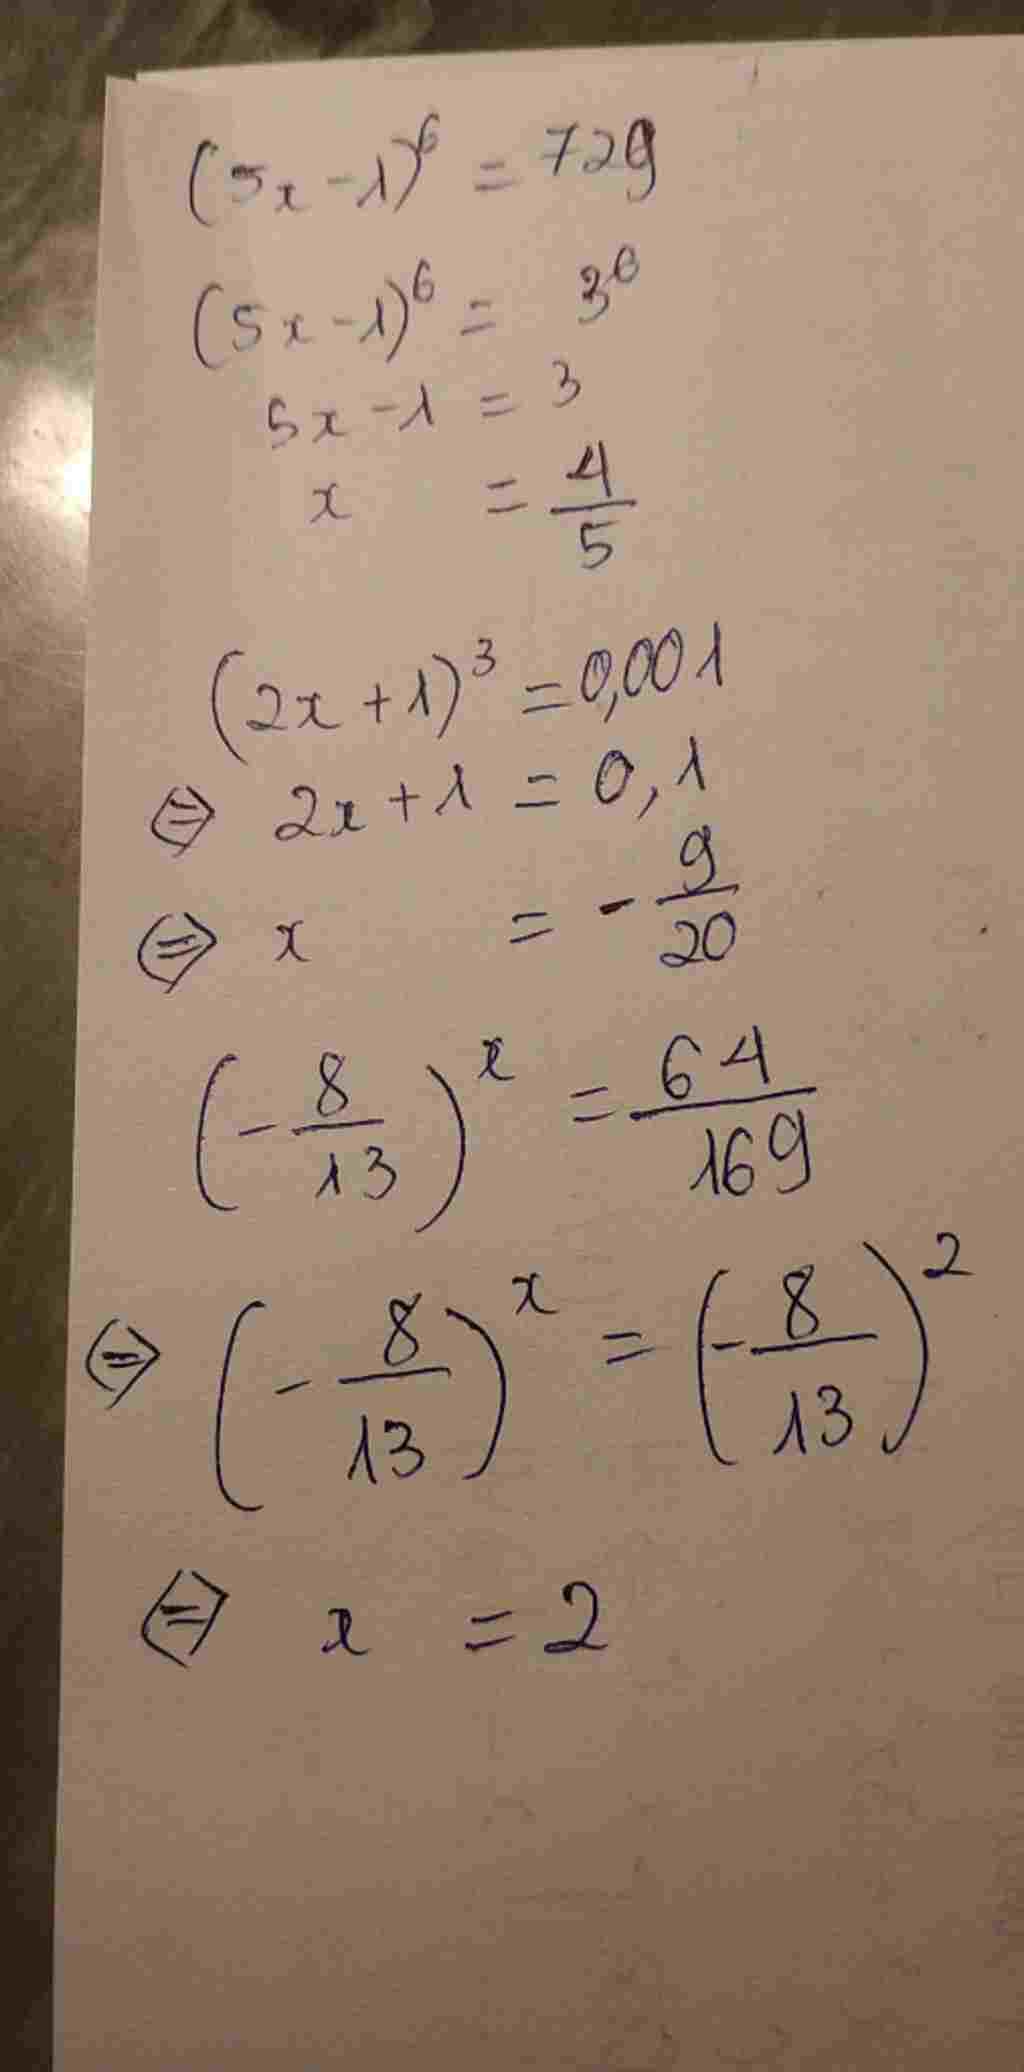 (5x-1)^6 = 729
(5x-1)^6 = 3^6
5x-1 = 3
x = 4/5
(2x+1)^3 = 0,001
⇔ 2x+1 = 0,1
⇔ x = -9/20
(-8/13)^x = 64/169
⇔ (-8/13)^x = (-8/13)^2
⇔ x = 2